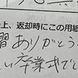 上、返却時にこの用紙
習ありがとう
い卒業式で